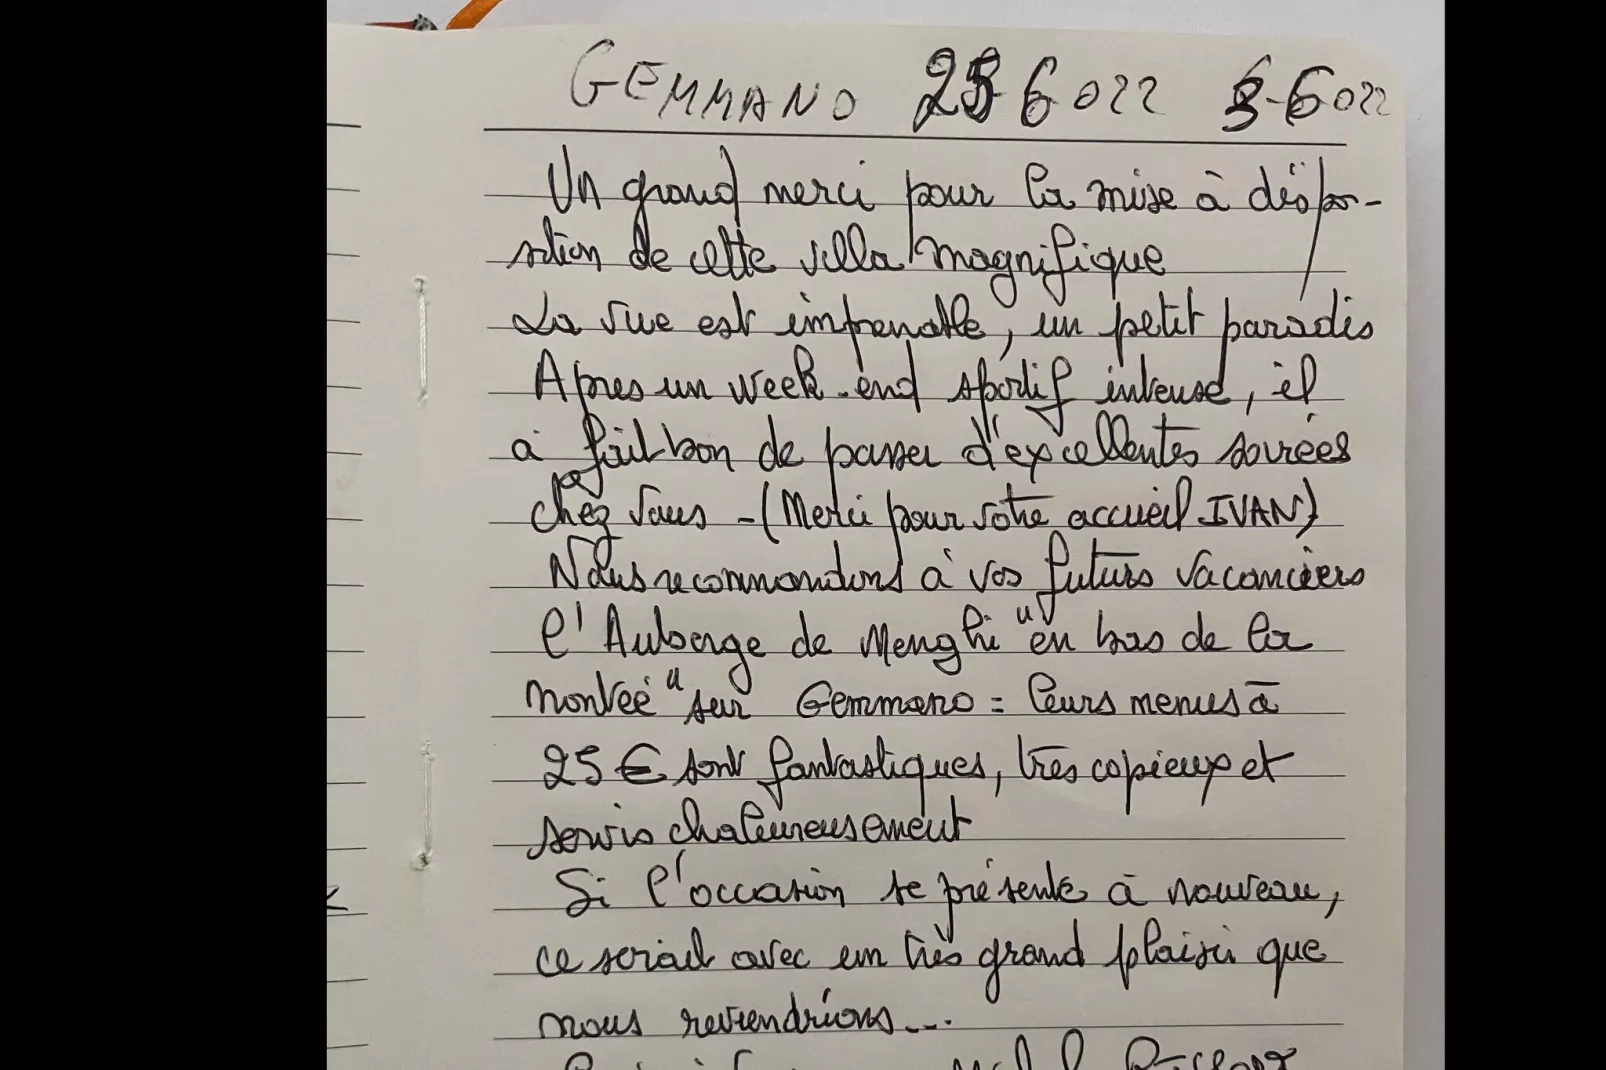 GEMMANO 25 6 022 3-6 022
Un grand merci pour la mise à dispo-
sition de cette villa magnifique
La vue est imprenable, un petit paradis
Apres un week-end sportif intense, il
a fait bon de passer d'excellentes soirées
chez vous - (Merci pour votre accueil IVAN)
Nous recommandons à vos futurs vacanciers
l'Auberge de Menghi "en bas de la
montée" sur Gemmano = leurs menus à
25 € sont fantastiques, très copieux et
servis chaleureusement
Si l'occasion se présente à nouveau,
ce serait avec un très grand plaisir que
nous reviendrions...